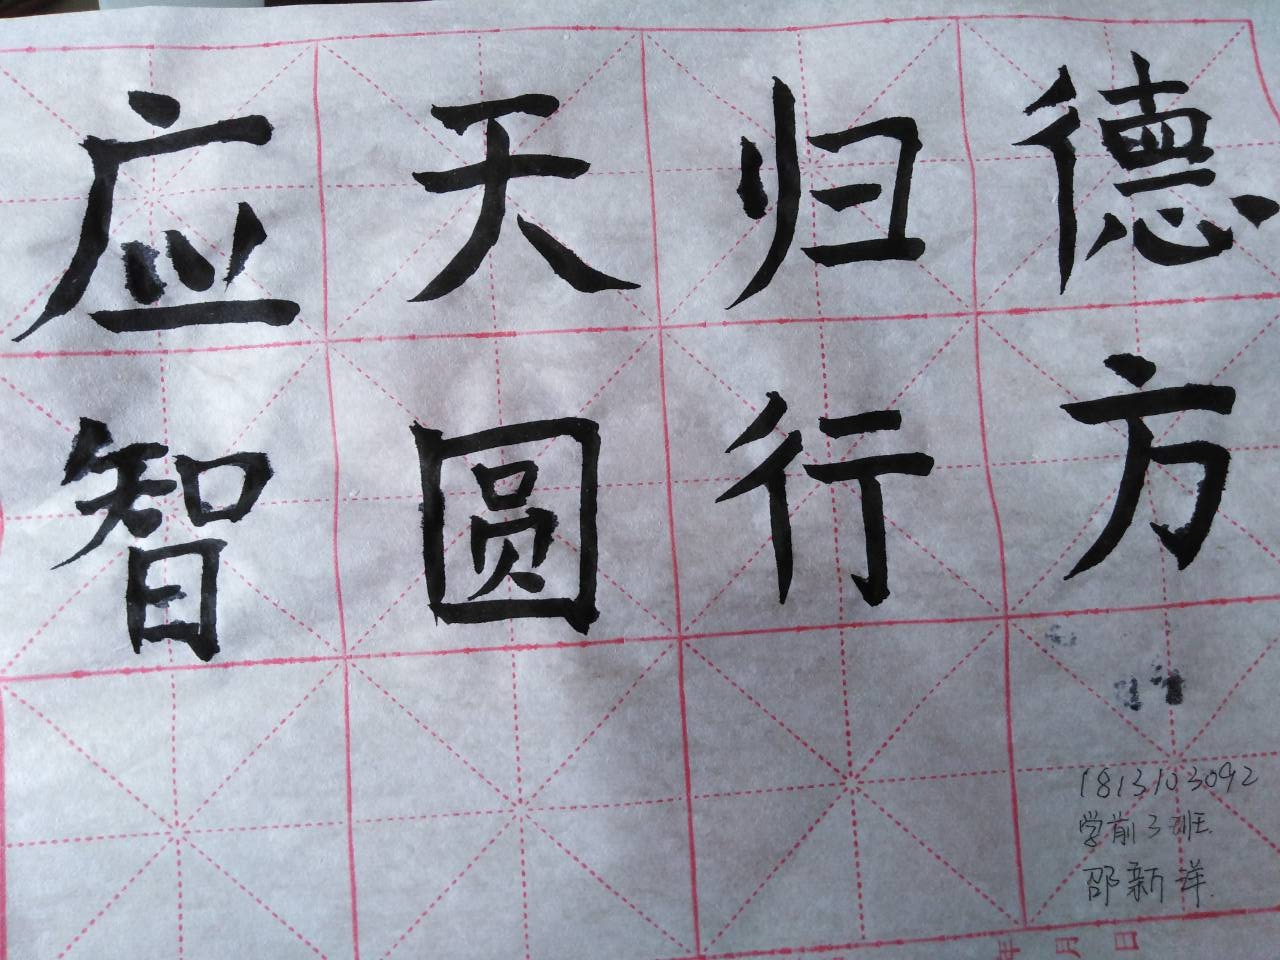 应天归德
智圆行方
1813103092
学前3班
邵新洋
年 月 日